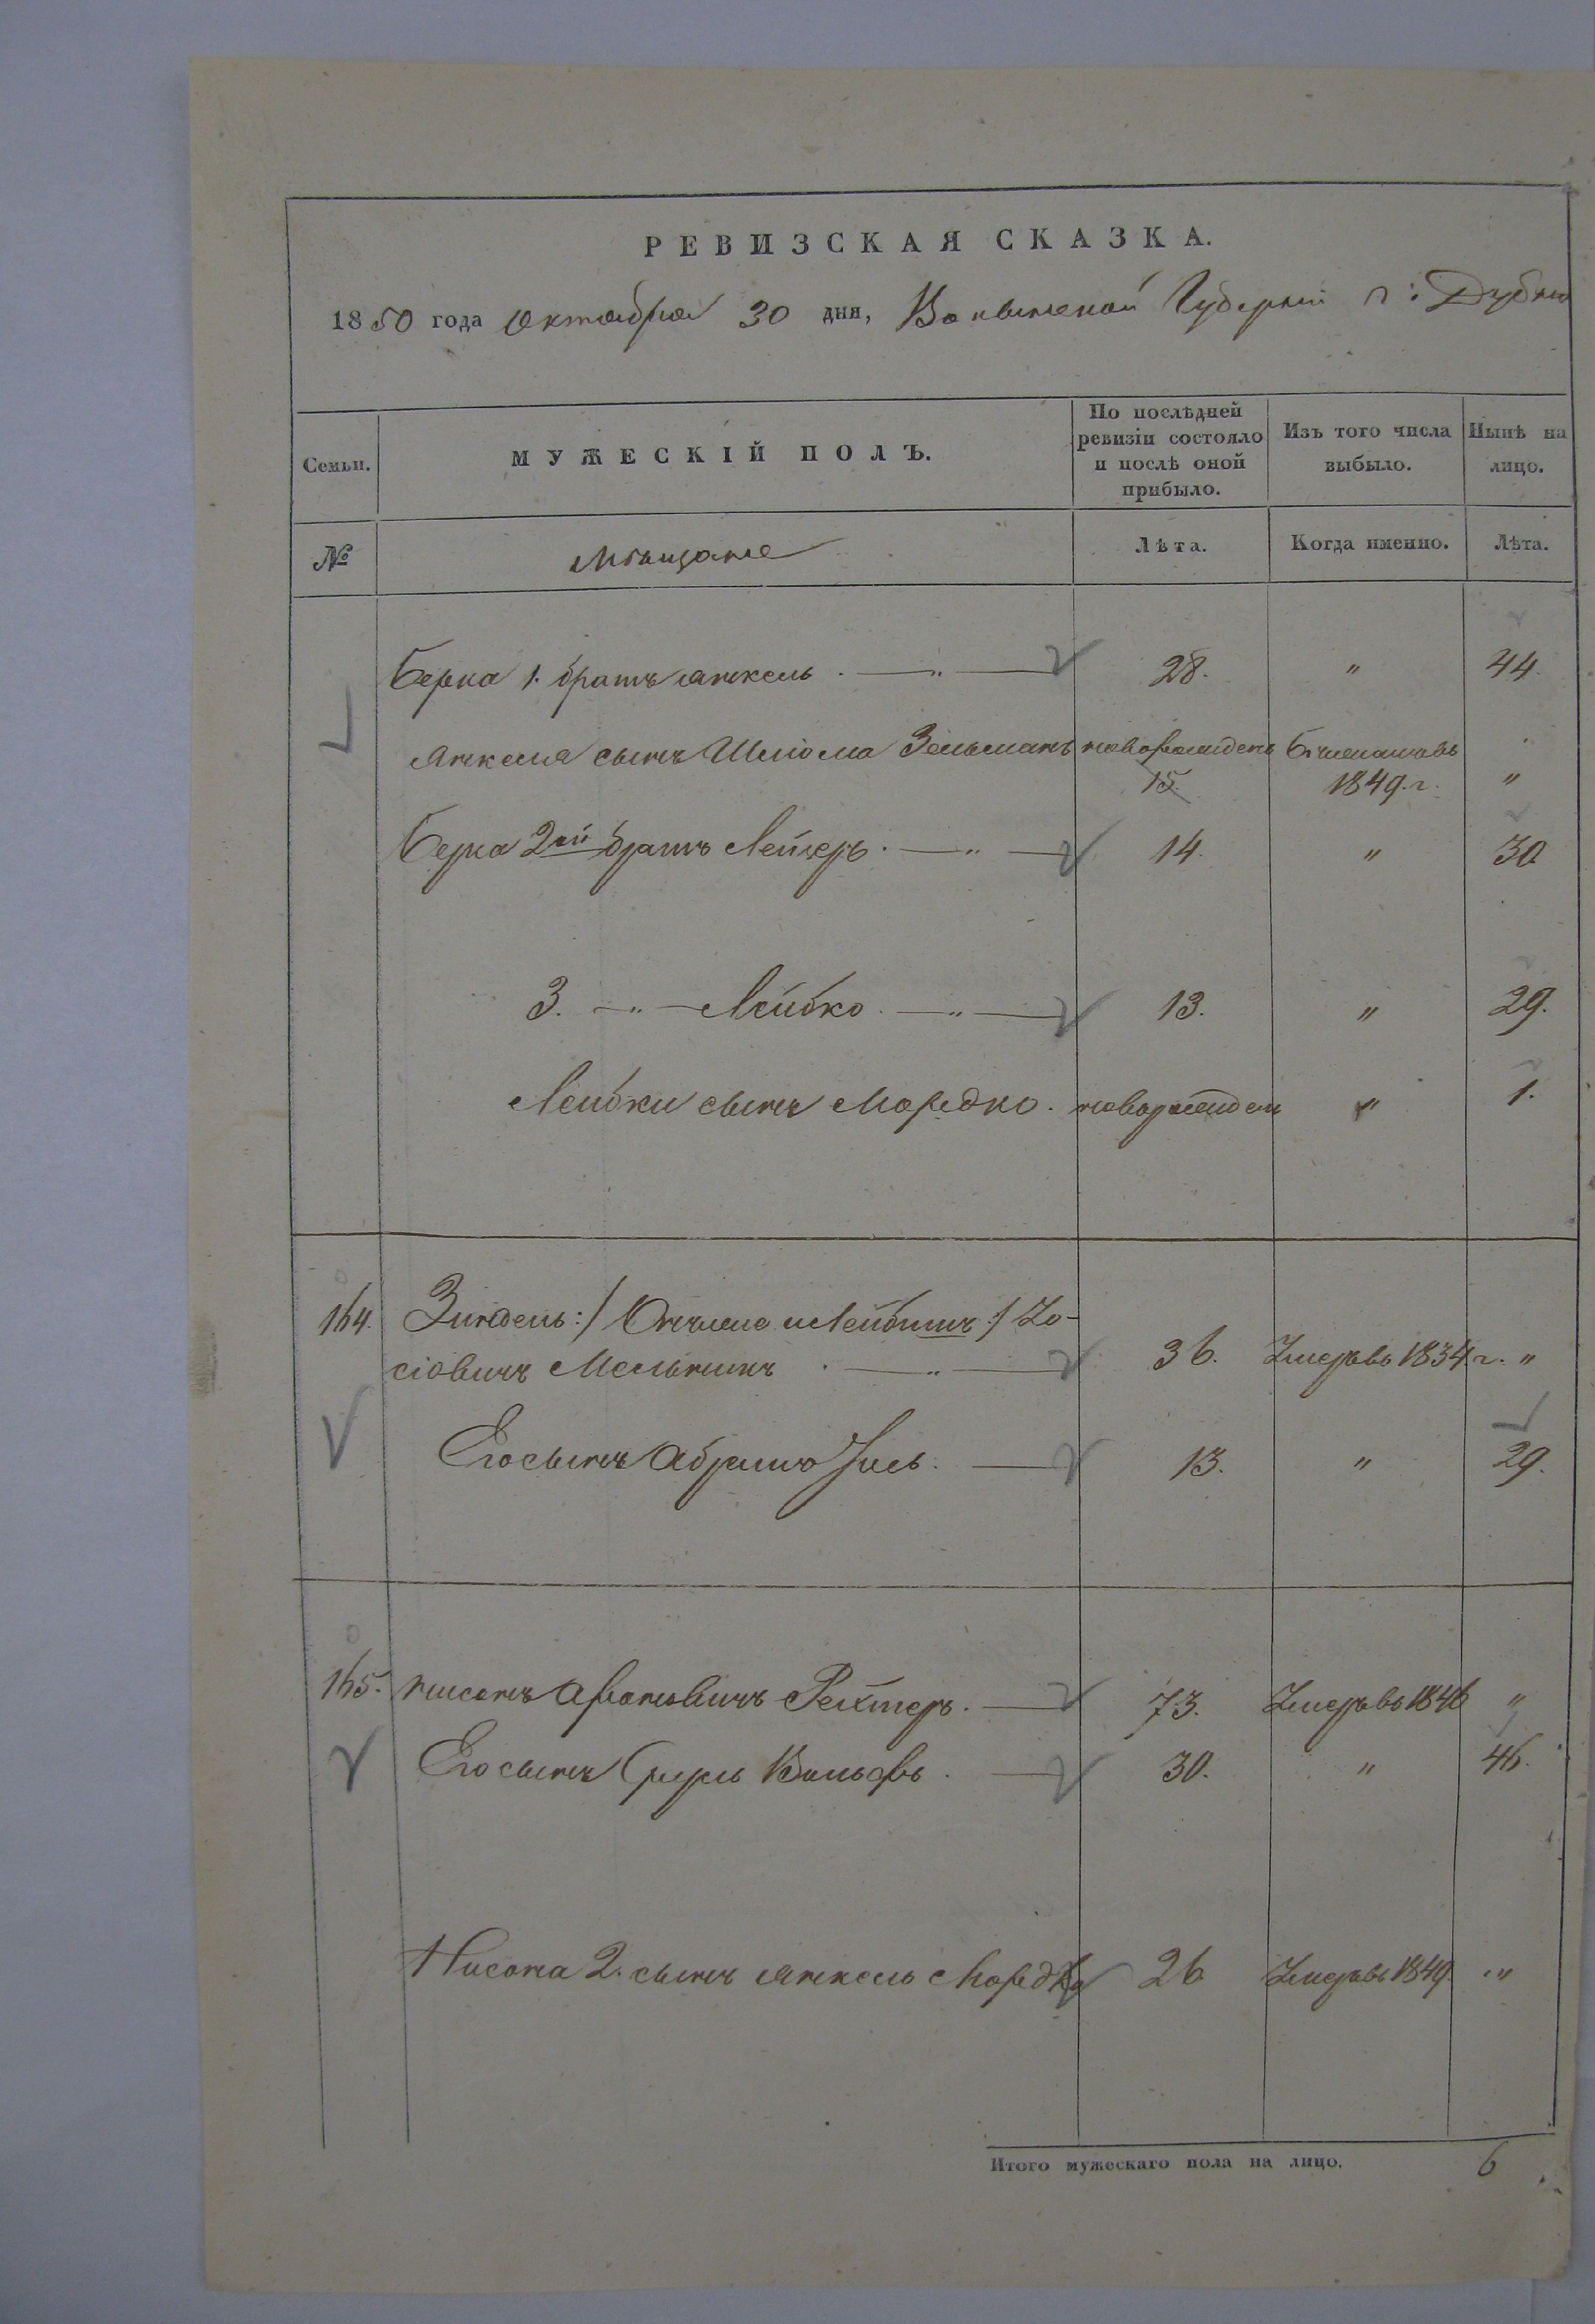 РЕВИЗСКАЯ СКАЗКА.
1850 года Октября 30 дня, Волынской Губернии г: Дубно
Семьи.
МУЖЕСКІЙ ПОЛЪ.
По послѣдней ревизіи состояло и послѣ оной прибыло.
Изъ того числа выбыло.
Нынѣ на лицо.
№
Мѣщане
Лѣта.
Когда именно.
Лѣта.
Берка 1. братъ Янкель . — " — 28. " 44.
Янкеля сынъ Шліома Зельманъ новорожденъ 1849.г. "
15.
Берка 2ой братъ Лейзеръ . — " — 14. " 30
3. — " — Лейбко . — " — 13. " 29.
Лейбки сынъ Мордко . новорожден " 1.
164. Зиндель :/ Лейбишъ :/ Іо-
сіовичъ Мельникъ . — " — 36. Умеръ въ 1834 г. "
Его сынъ Абрамъ . — 13. " 29.
165. Нисонъ Ароновичъ Рехтеръ . — 73. Умеръ въ 1846 "
Его сынъ Сруль Вольфъ . — 30. " 46.
Нисона 2. сынъ Янкель Мордко 26 Умеръ въ 1849 "
Итого мужескаго пола на лицо. 6